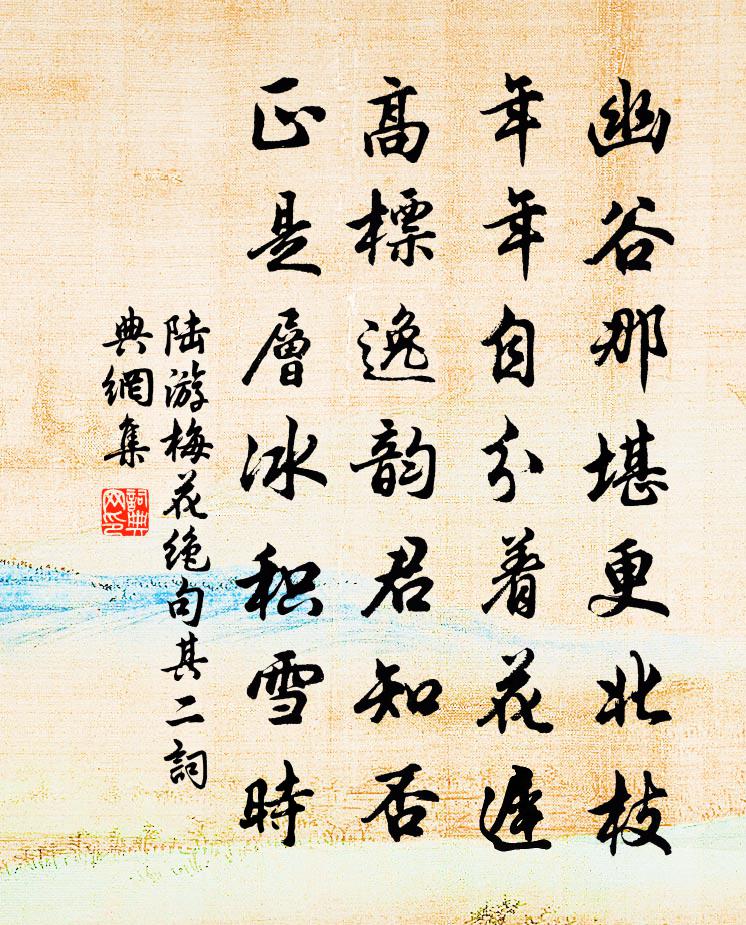 幽谷那堪更北枝
年年自分着花遲
高標逸韵君知否
正是層冰积雪時
陆游梅花绝句其二詞
典網集
詞典
网印